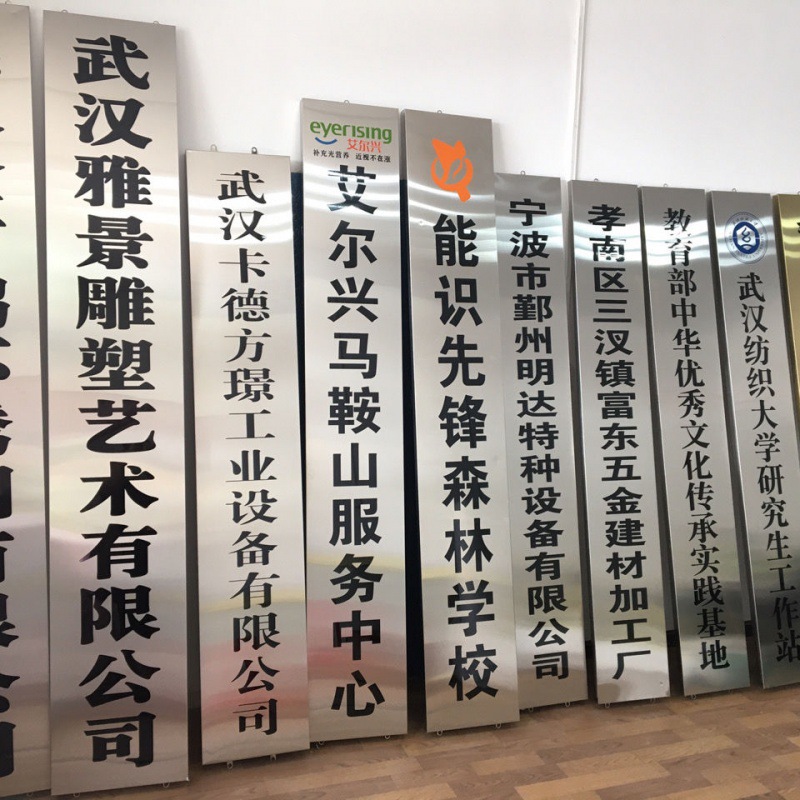 武汉雅景雕塑艺术有限公司
武汉卡德方璟工业设备有限公司
eyerising
艾尔兴
补充光营养 近视不衰液
艾尔兴马鞍山服务中心
能识先锋森林学校
宁波市鄞州明达特种设备有限公司
孝南区三汊镇富东五金建材加工厂
教育部中华优秀文化传承实践基地
武汉纺织大学研究生工作站